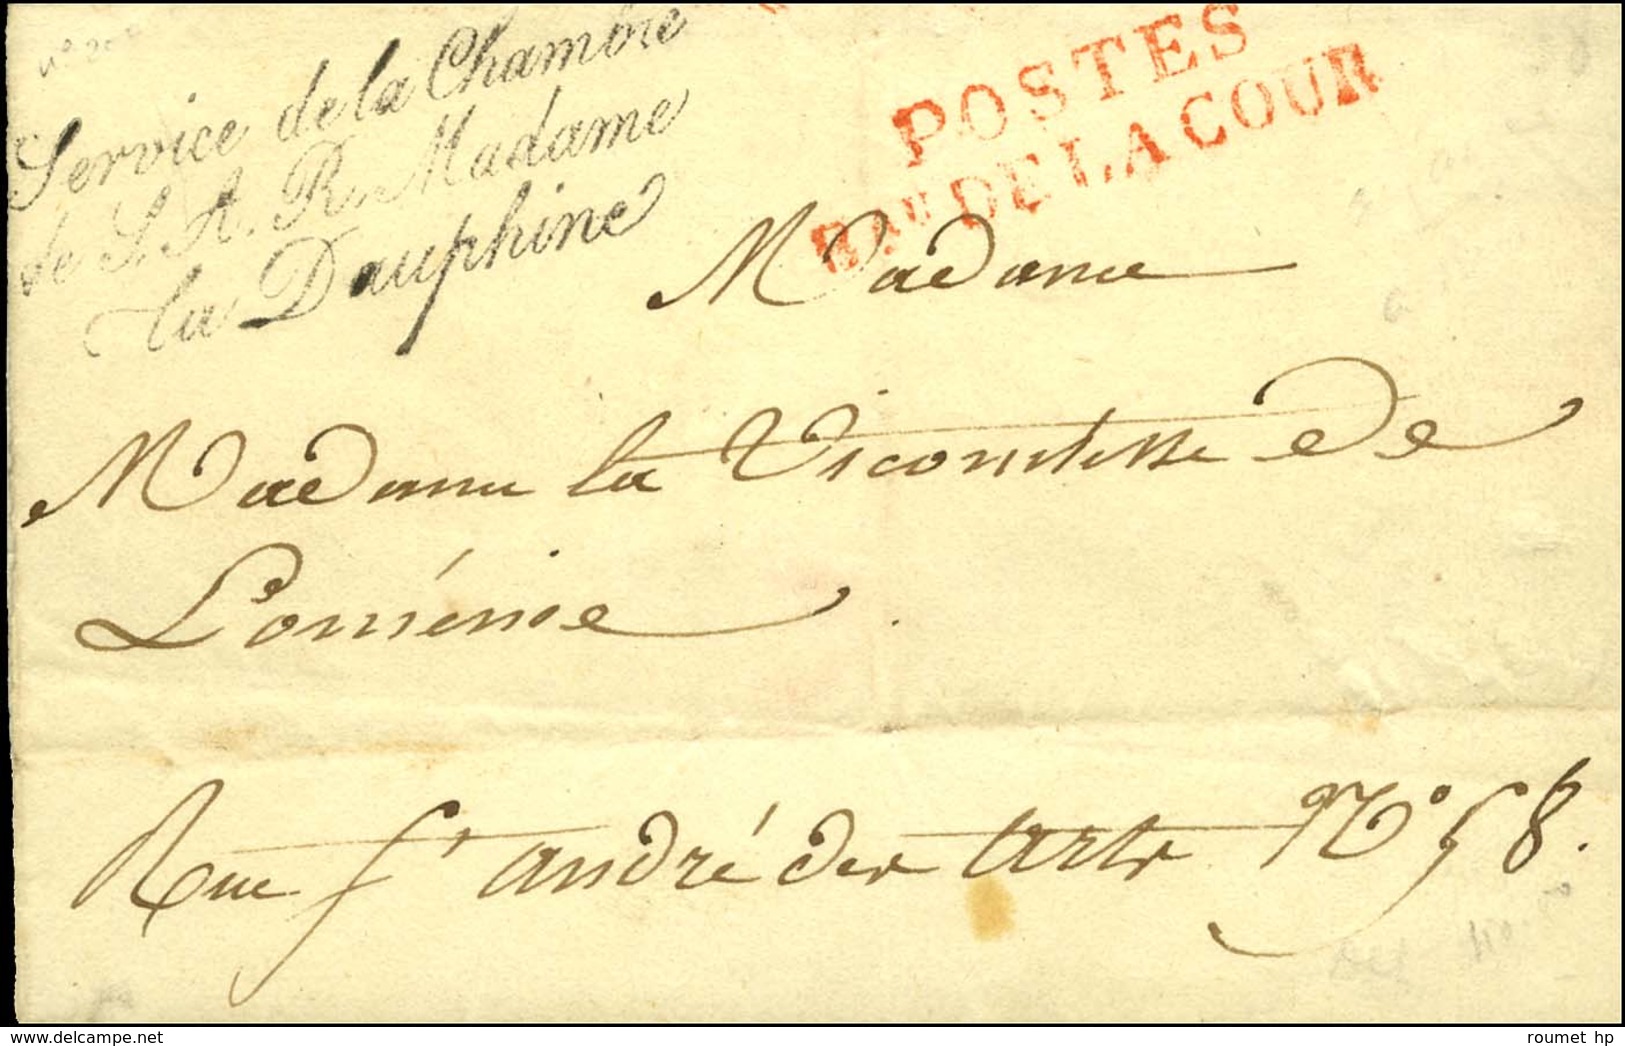 Service de la Chambre
de S. A. R. Madame
la Dauphine
POSTES
Bau DE LA COUR
Madame
Madame la Vicomtesse de
Loménie
Rue St andré des arts N° 58.
delcampe.net
roumet hp